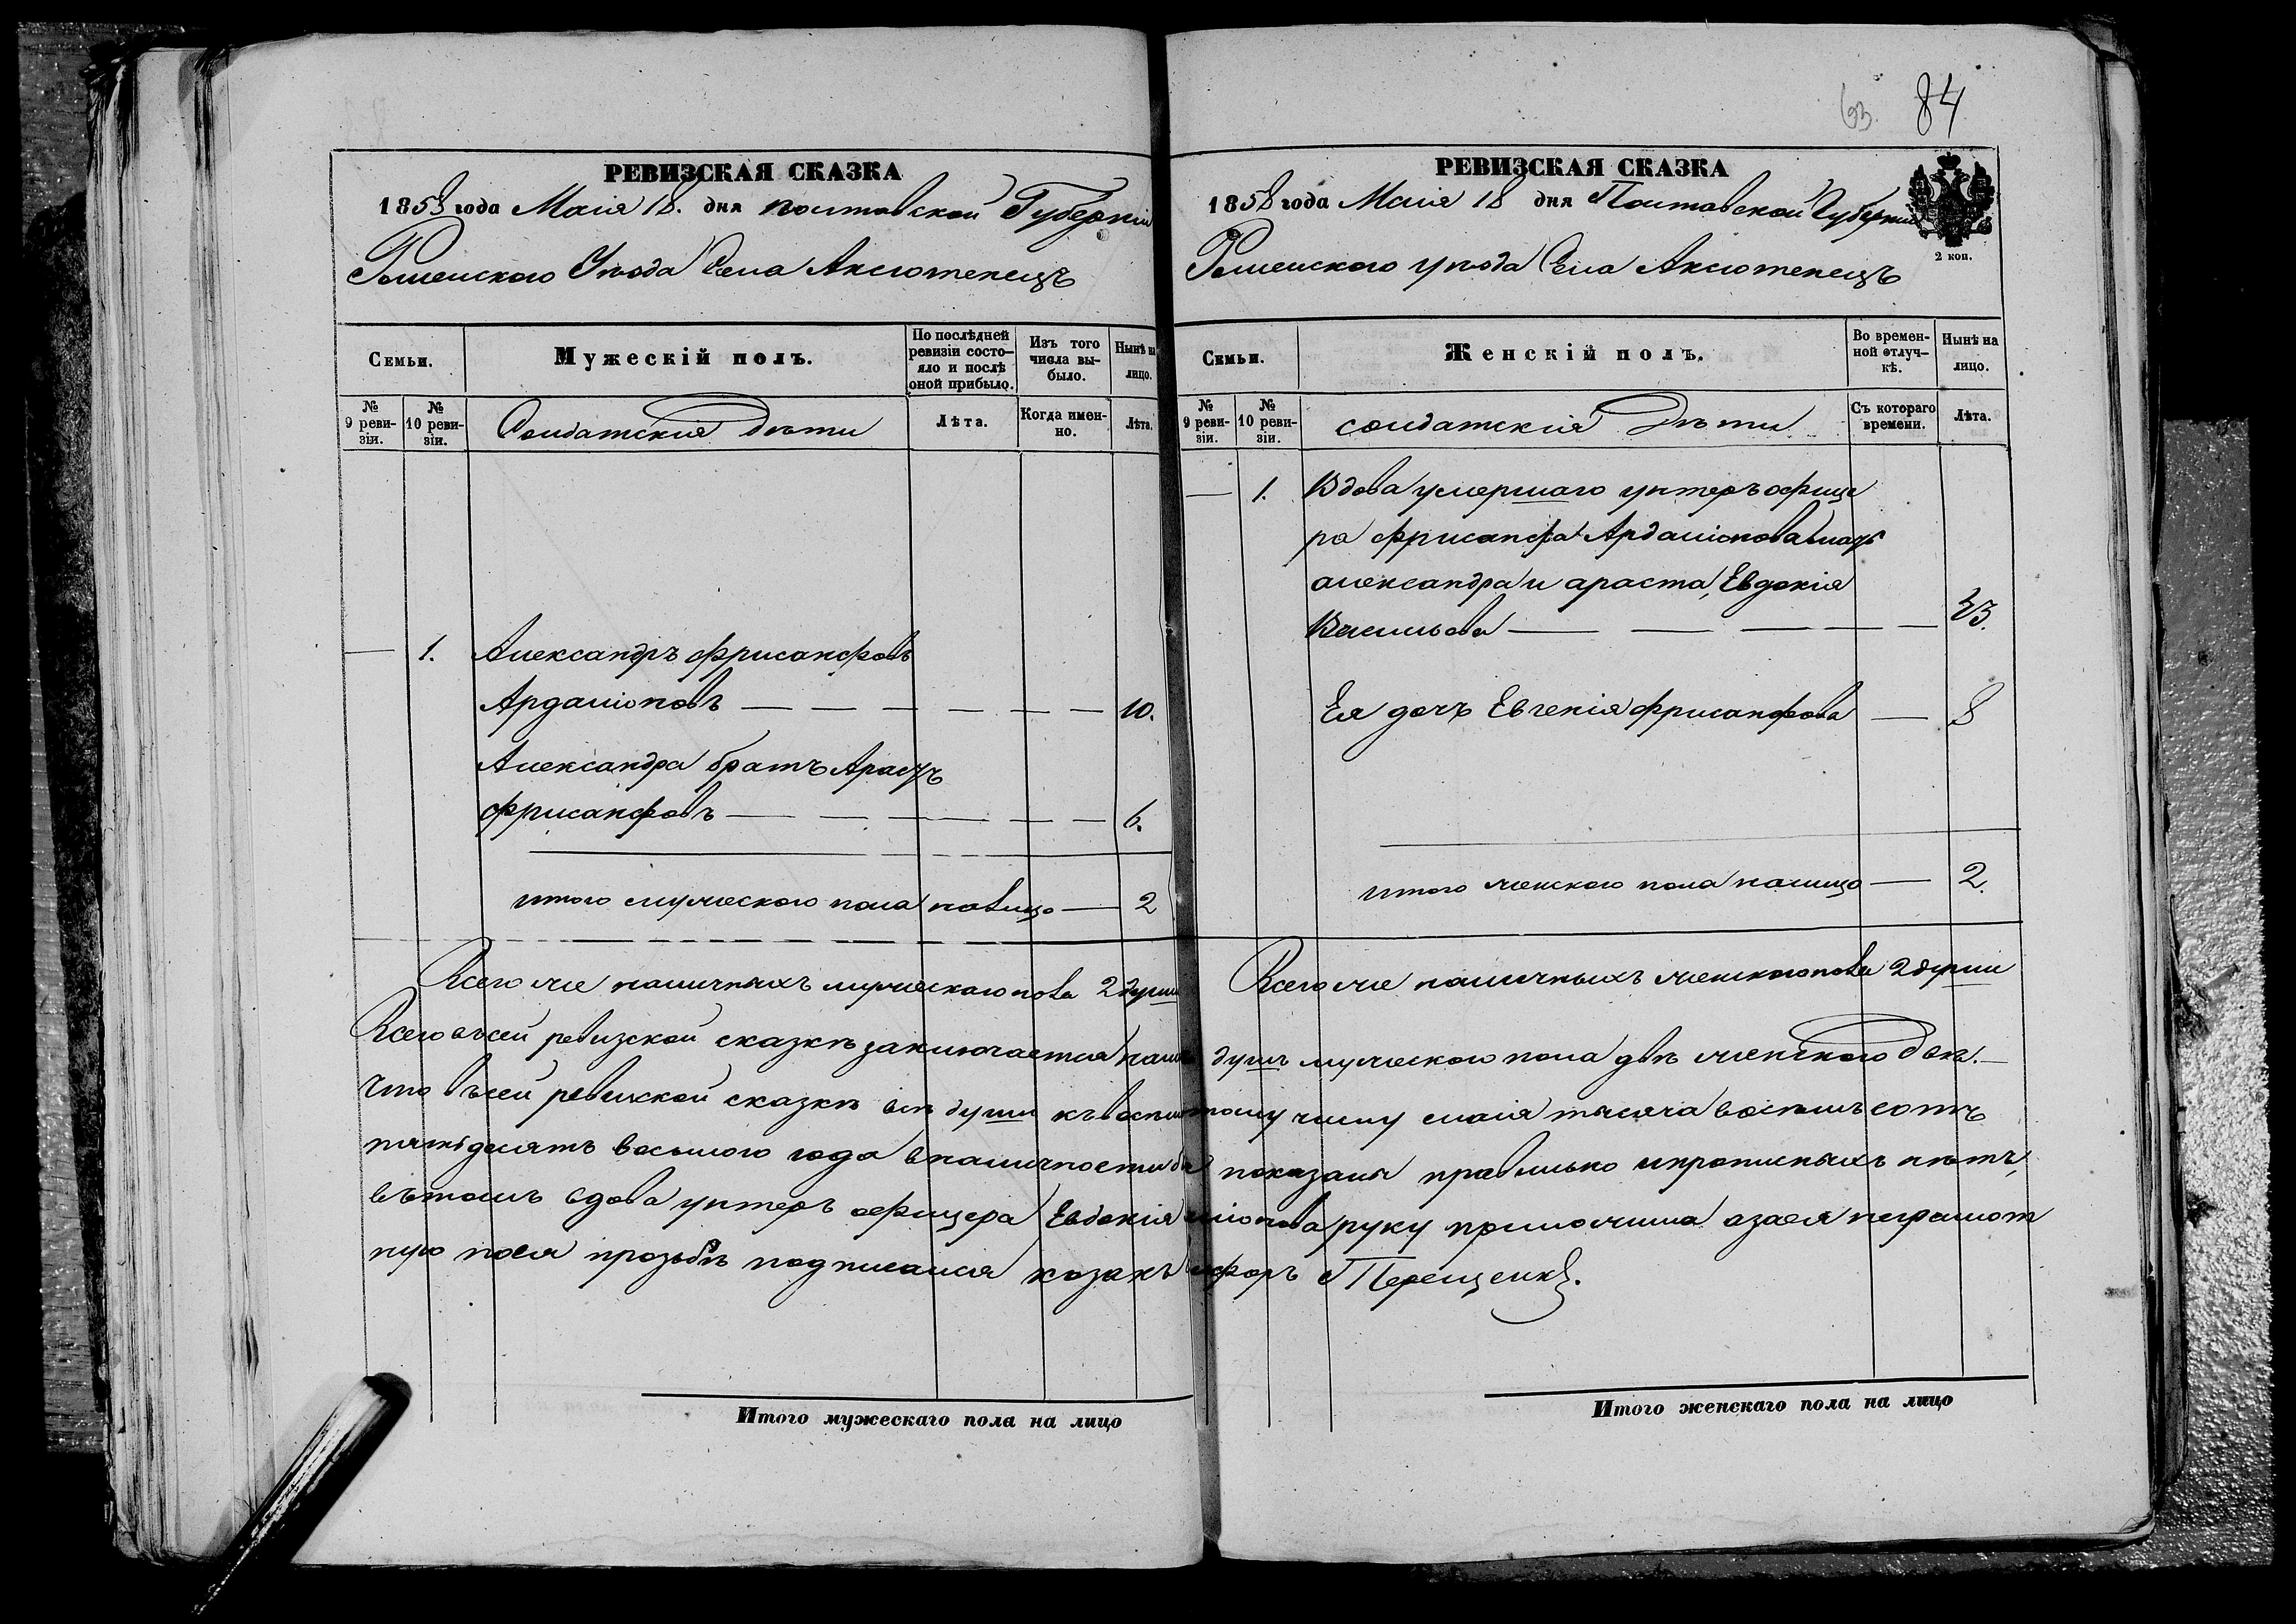 РЕВИЗСКАЯ СКАЗКА
1858 года Маія 18. дня Полтавской Губерніи
Роменского Уѣзда Села Аксютенецъ
Семьи.
Мужескій полъ.
По послѣдней ревизіи состо-яло и послѣ оной прибыло.
Изъ того числа вы-было.
Нынѣ на лицо.
№ 9 реви-зіи.
№ 10 реви-зіи.
Солдатскія дѣти
Лѣта.
Когда имен-но.
Лѣта.
— 1. Александръ Фрисанфовъ
Ардаліоновъ — — — — — — 10.
Александра братъ Арастъ
Фрисанфовъ — — — — — 6.
итого мужеского пола налицо — 2
Всего же наличныхъ мужескаго пола 2 души
63. 84
РЕВИЗСКАЯ СКАЗКА
1858 года Маія 18 дня Полтавской Губерніи
Роменского уѣзда Села Аксютенецъ
2 коп.
Семьи.
Женскій полъ.
Во времен-ной отлуч-кѣ.
Нынѣ на лицо.
№ 9 реви-зіи.
№ 10 реви-зіи.
солдатскія Дѣти
Съ котораго времени.
Лѣта.
— 1. Вдова умершаго унтеръ офице
ра Фрисанфа Ардаліонова мать
александра и араста, Евдокія
Васильева — — — — — 33.
Ея дочъ Евгенія Фрисанфова — 8
итого женского пола налицо — 2.
Всего же наличныхъ женского пола 2 души
Всего въсей ревизской сказкѣ заключается душъ мужеского пола двѣ женского двѣ.—
Что въсей ревизской сказкѣ всѣ души къ числу маія тысяча восемъ сотъ
пятьдесятъ восьмого года вналичности показаны правильно ипрописныхъ нѣтъ,
вътомъ вдова унтеръ офицера Евдокія руку приложила азаея неграмот
ную поея прозьбѣ подписался козакъ Терещенко.
Итого мужескаго пола на лицо
Итого женскаго пола на лицо